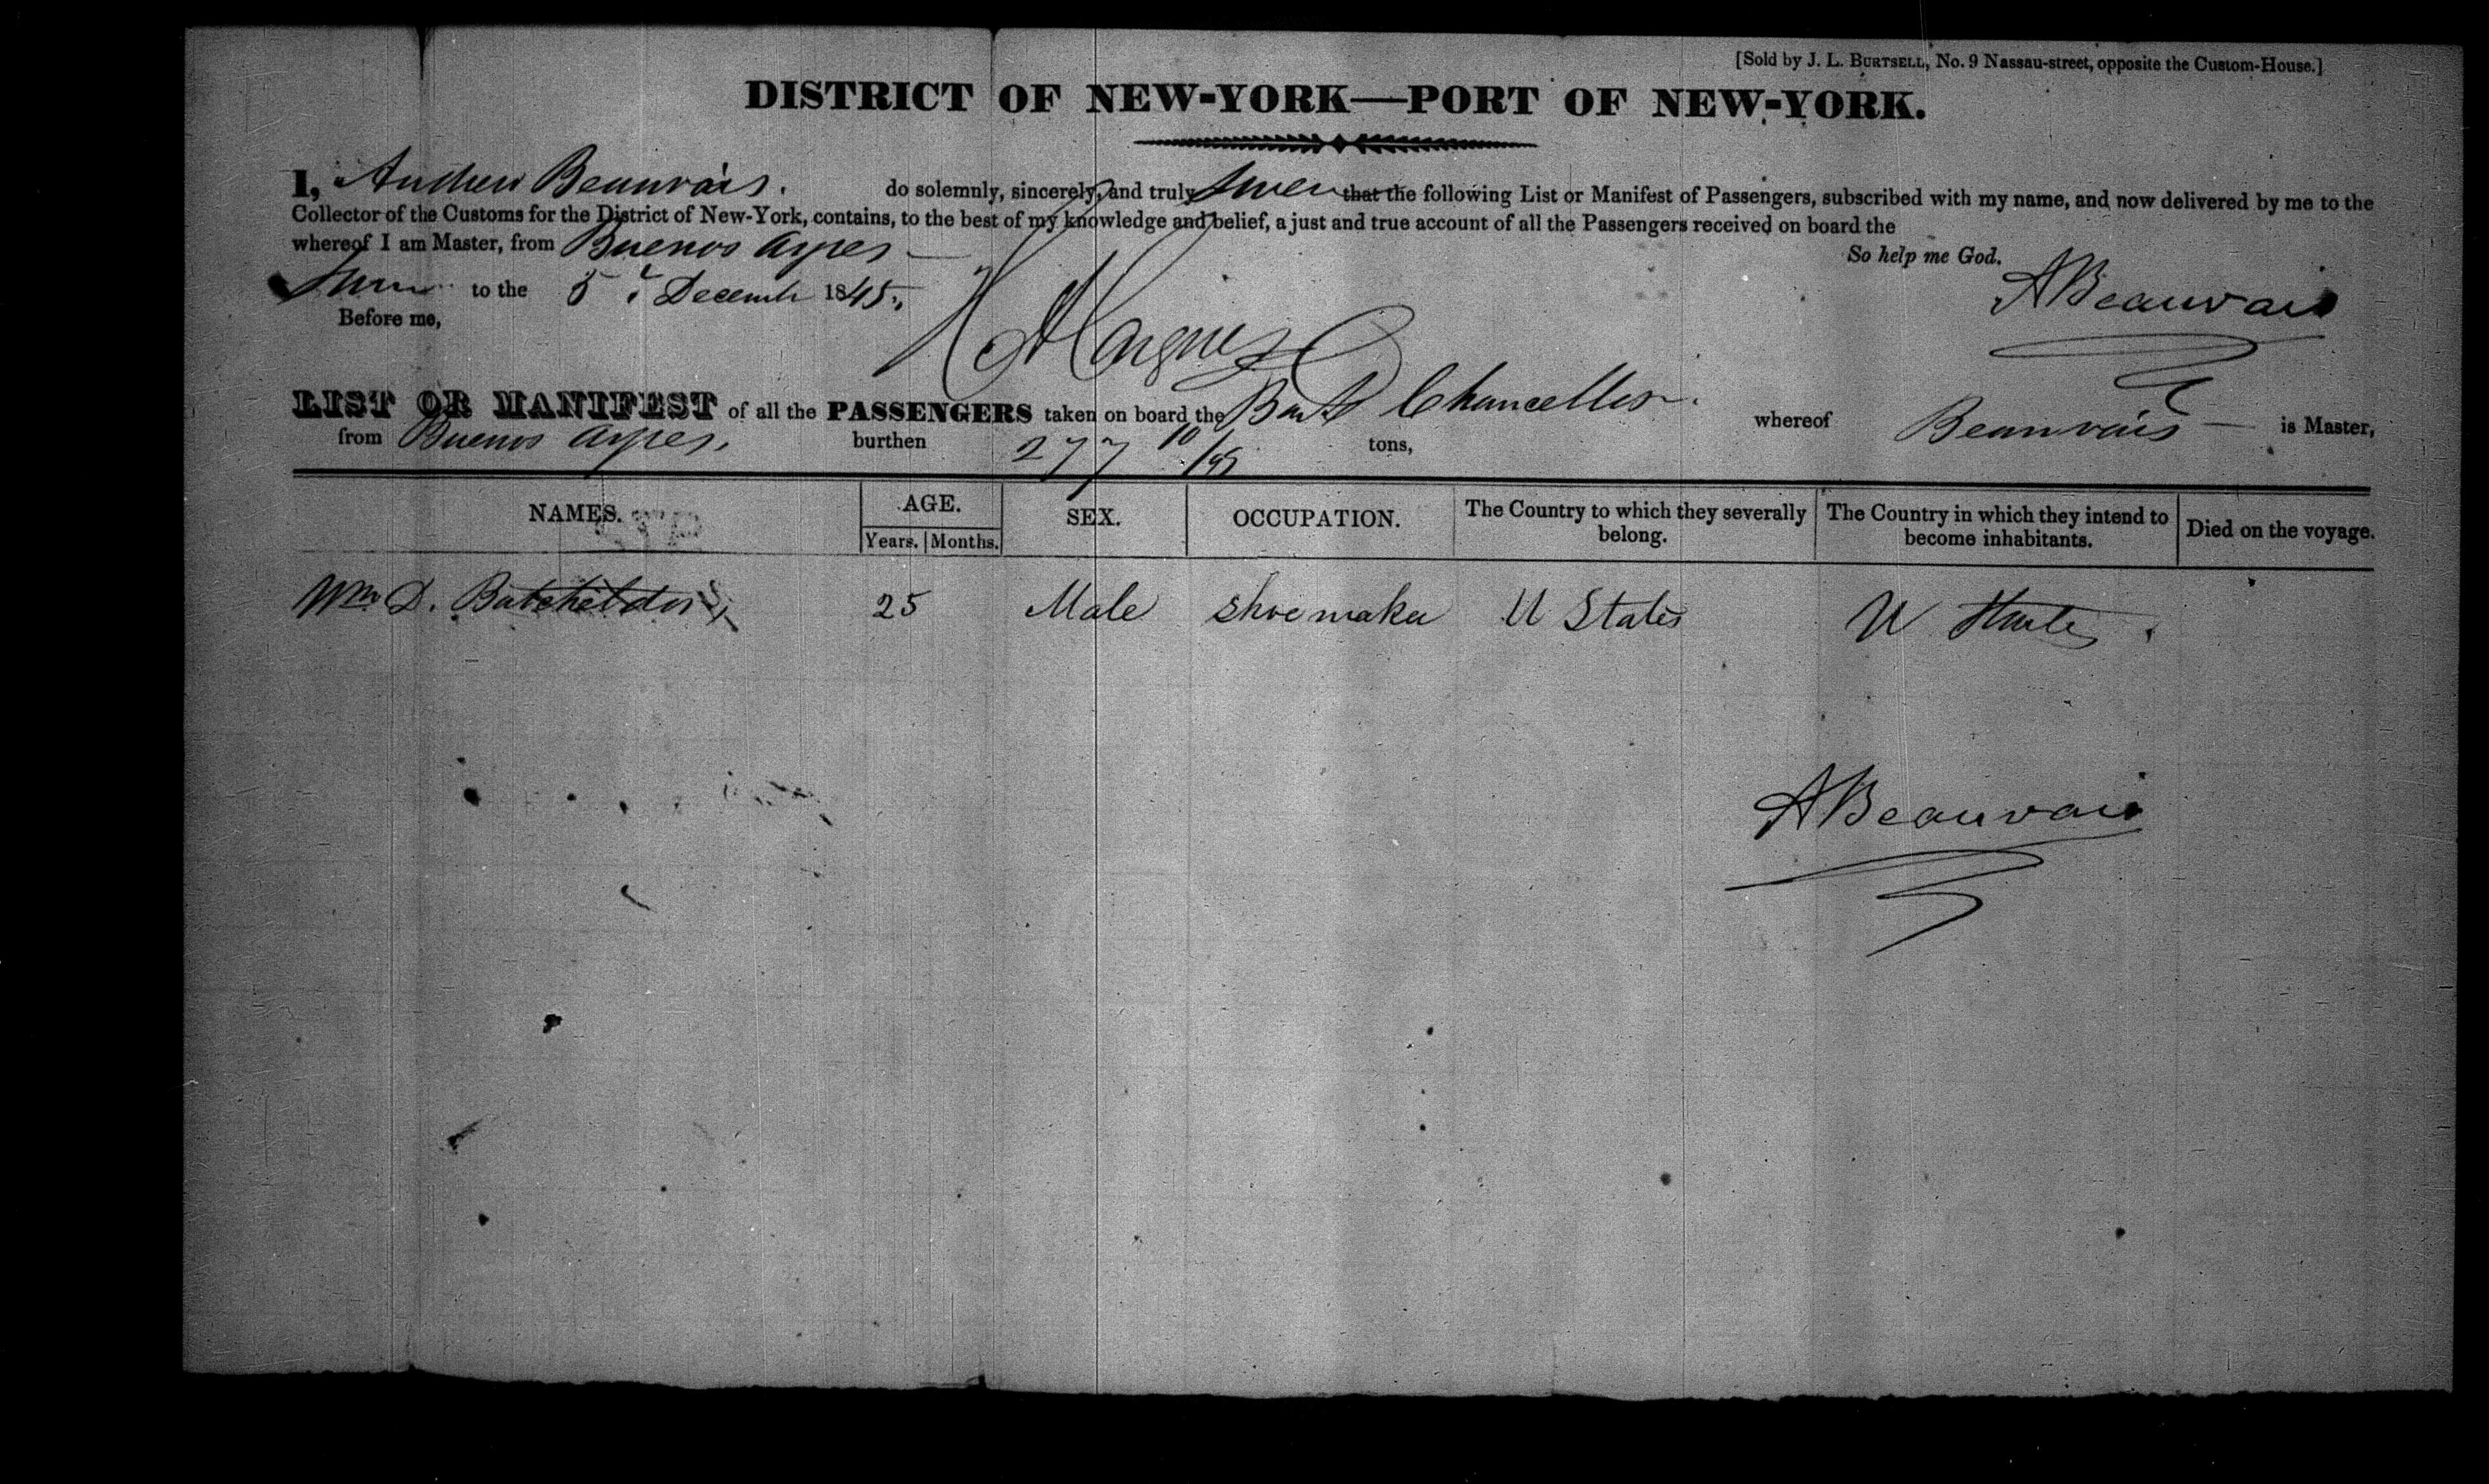 [Sold by J. L. BURTSELL, No. 9 Nassau-street, opposite the Custom-House.]
DISTRICT OF NEW-YORK—PORT OF NEW-YORK.
I, Andrew Beauvais. do solemnly, sincerely, and truly swear that the following List or Manifest of Passengers, subscribed with my name, and now delivered by me to the
Collector of the Customs for the District of New-York, contains, to the best of my knowledge and belief, a just and true account of all the Passengers received on board the
whereof I am Master, from Buenos Ayres
So help me God.
to the 5 December 1845.
ABeauvais
Before me,
LIST OR MANIFEST of all the PASSENGERS taken on board the Bark Chancellor. whereof Beauvais is Master,
from Buenos Ayres, burthen 277 10/95 tons,
NAMES. AGE. SEX. OCCUPATION. The Country to which they severally belong. The Country in which they intend to become inhabitants. Died on the voyage.
Years. Months.
Wm D. Batchelder 25 Male shoemaker U States U States.
ABeauvais